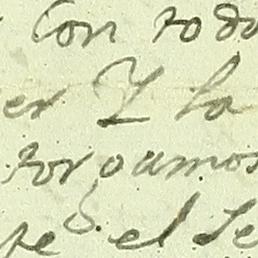 Con todo
er Y la
torgamos
te el Se